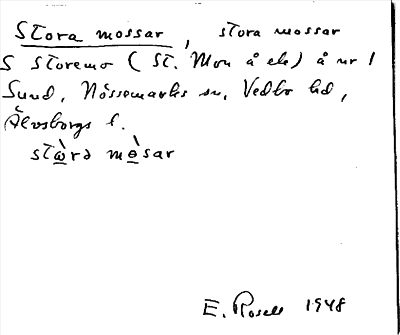 Stora mossar, stora mossar
S Storemo (St. Mon å ek) å nr 1
Sund, Nössemarks sn, Vedbo hd,
Älvsborgs l.
stⱺ̀rə mɵ̀sar
E. Rosell 1948